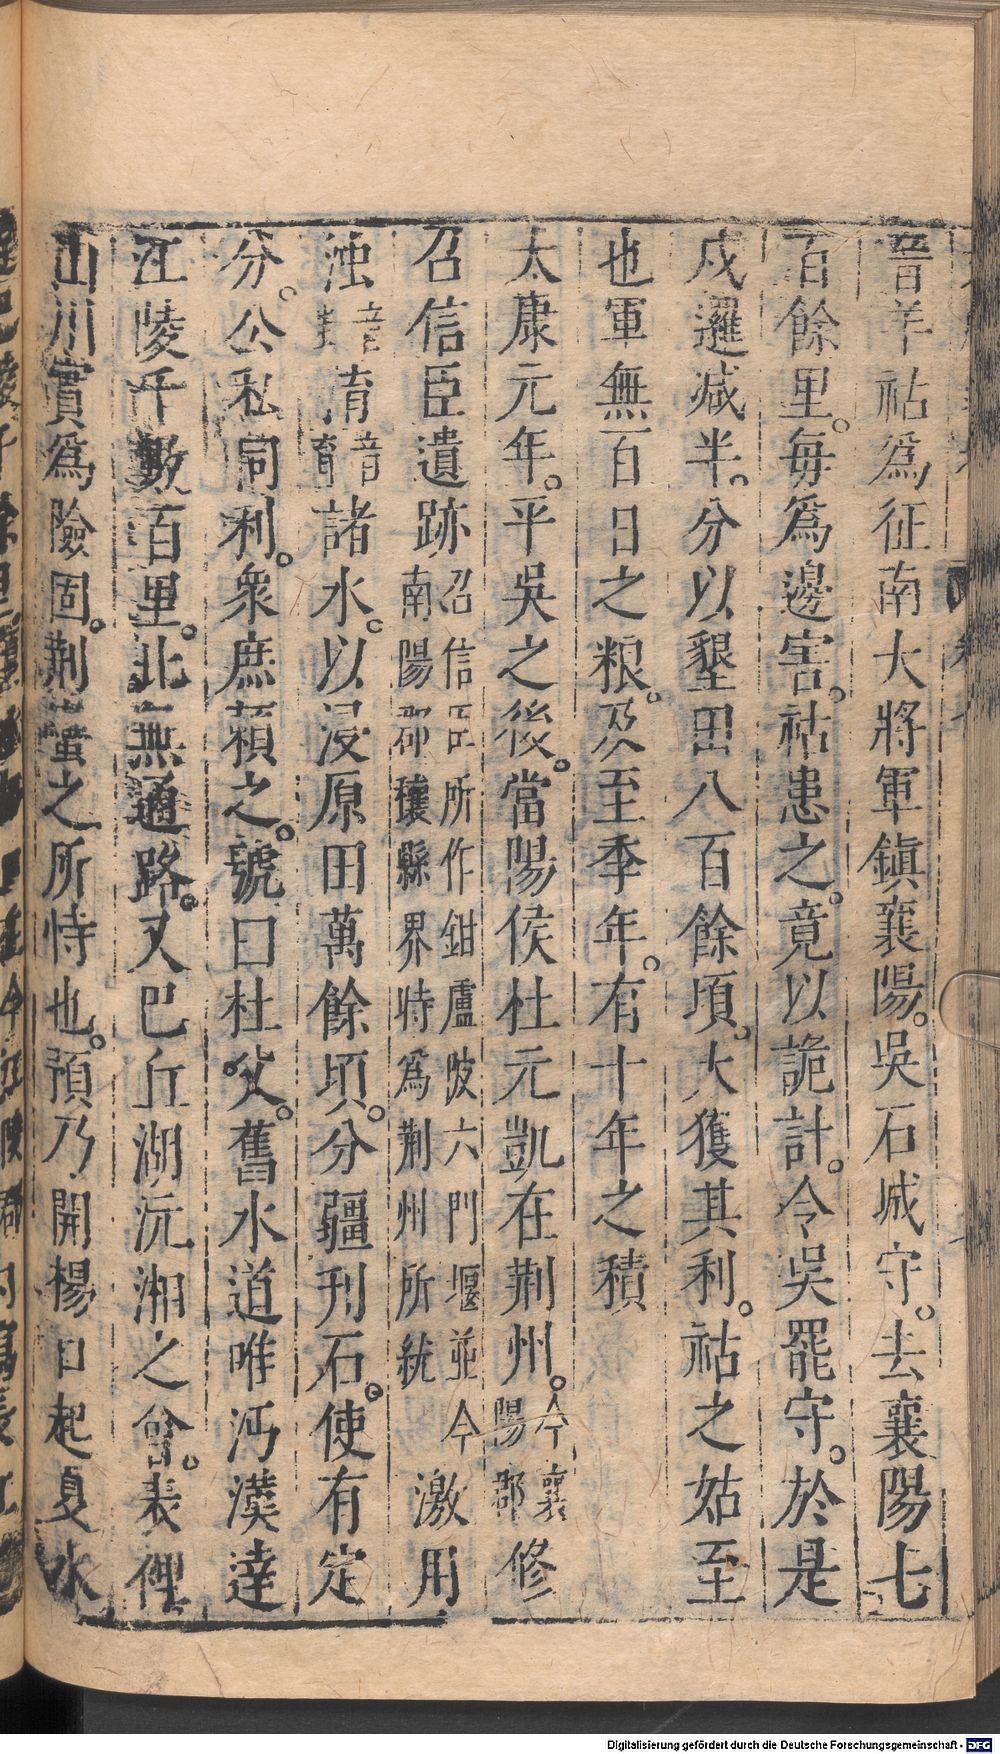 晉羊祜爲征南大將軍鎮襄陽。吳石城守。去襄陽七
百餘里。每爲邊害。祜患之。竟以詭計。令吳罷守。於是
戍邏減半。分以墾田八百餘頃。大獲其利。祜之姑至
也軍無百日之粮。及至季年。有十年之積
太康元年。平吳之後。當陽侯杜元凱在荆州。今襄陽郡修
召信臣遺跡召信臣所作鉗盧陂六門堰並今南陽郡穰縣界時爲荆州所統激用
滍音淯音育諸水。以浸原田萬餘頃。分疆刋石。使有定
分。公私同利。衆庶賴之。號曰杜父。舊水道唯沔漢達
江陵千數百里。北無通路。又巴丘湖沅湘之會。表裡
山川實爲險固。荆蠻之所恃也。預乃開楊口起夏水
Digitalisierung gefördert durch die Deutsche Forschungsgemeinschaft - DFG